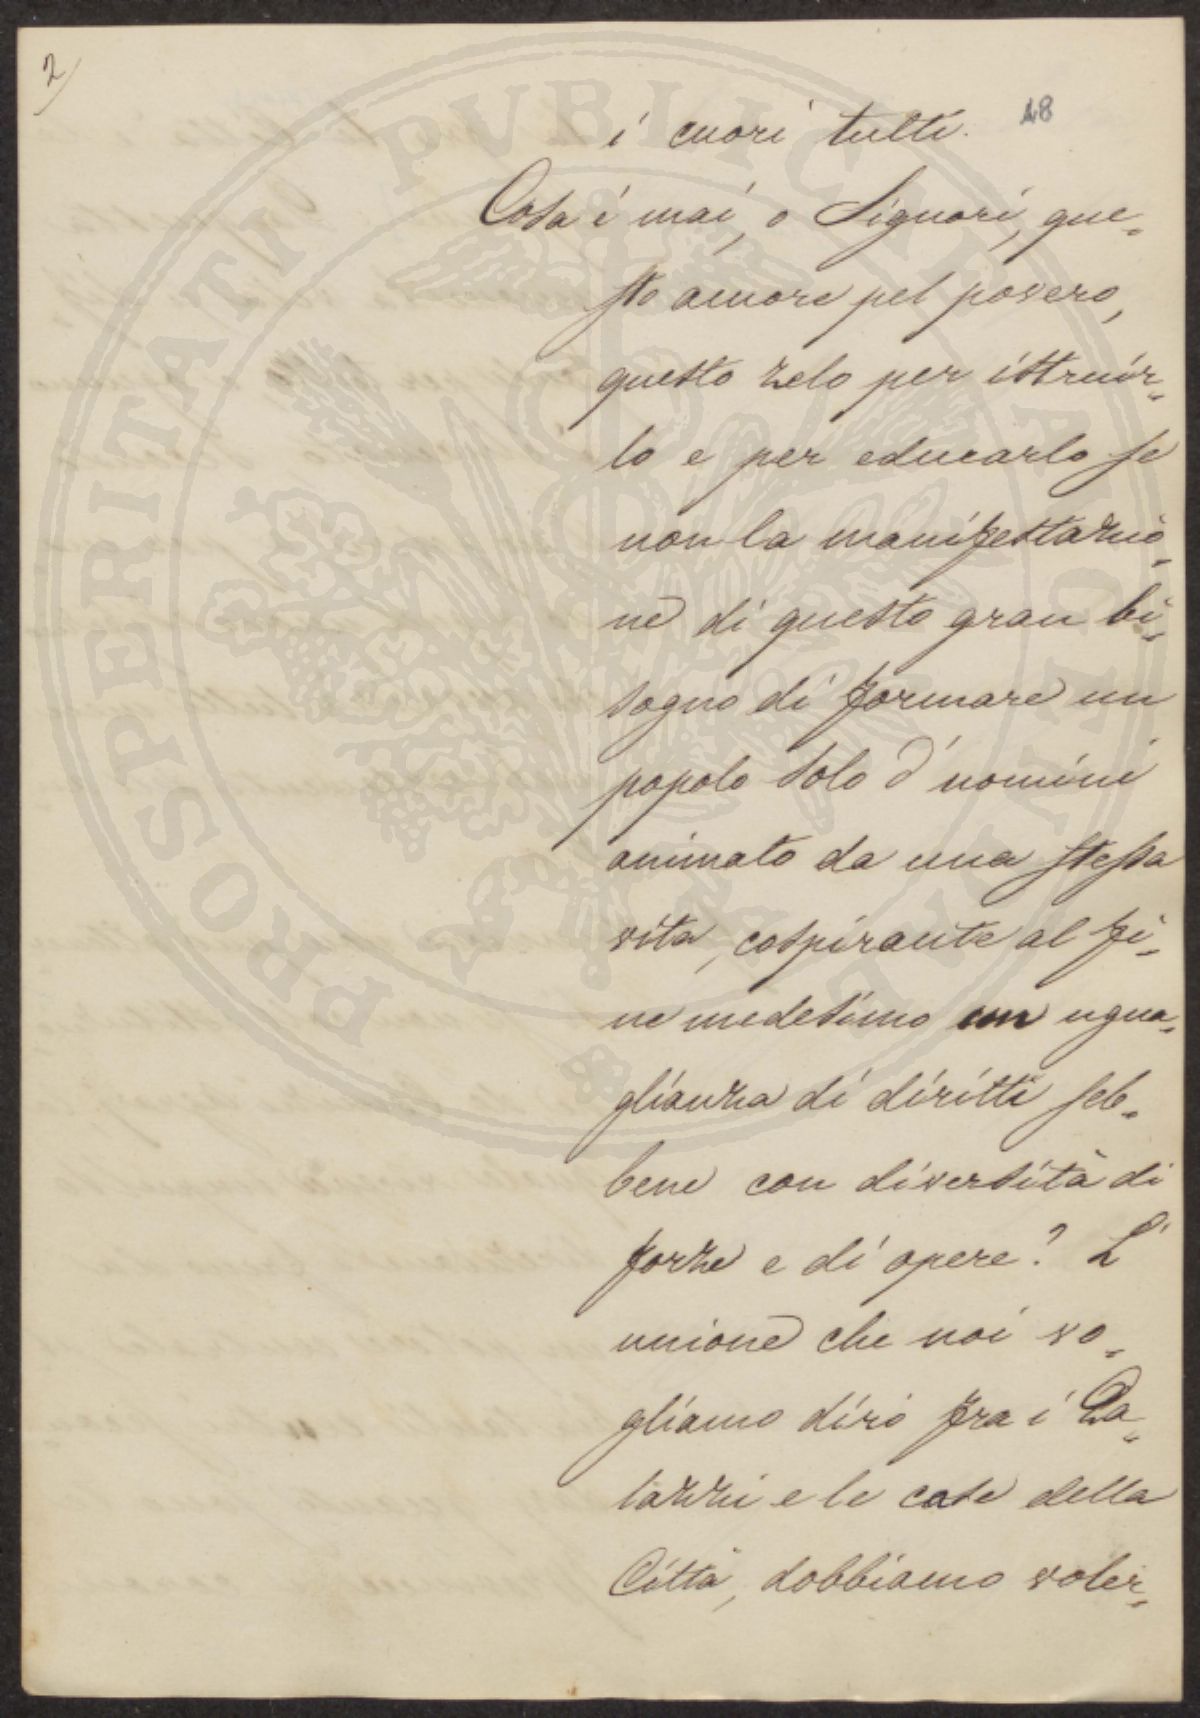 2/
48
i cuori tutti.
Cosa è mai, o Signori, que=
sto amore pel povero,
questo zelo per istruir=
lo e per educarlo se
non la manifestazio=
ne di questo gran bi=
sogno di formare un
popolo solo d'uomini
animato da una stessa
vita, cospirante al fi=
ne medesimo con ugua=
glianza di diritti seb=
bene con diversità di
forze e di opere? L'
unione che noi vo=
gliamo dirò fra i Pa=
lazzi e le case della
Città, dobbiamo voler=
PROSPERITATI PUBLICAE